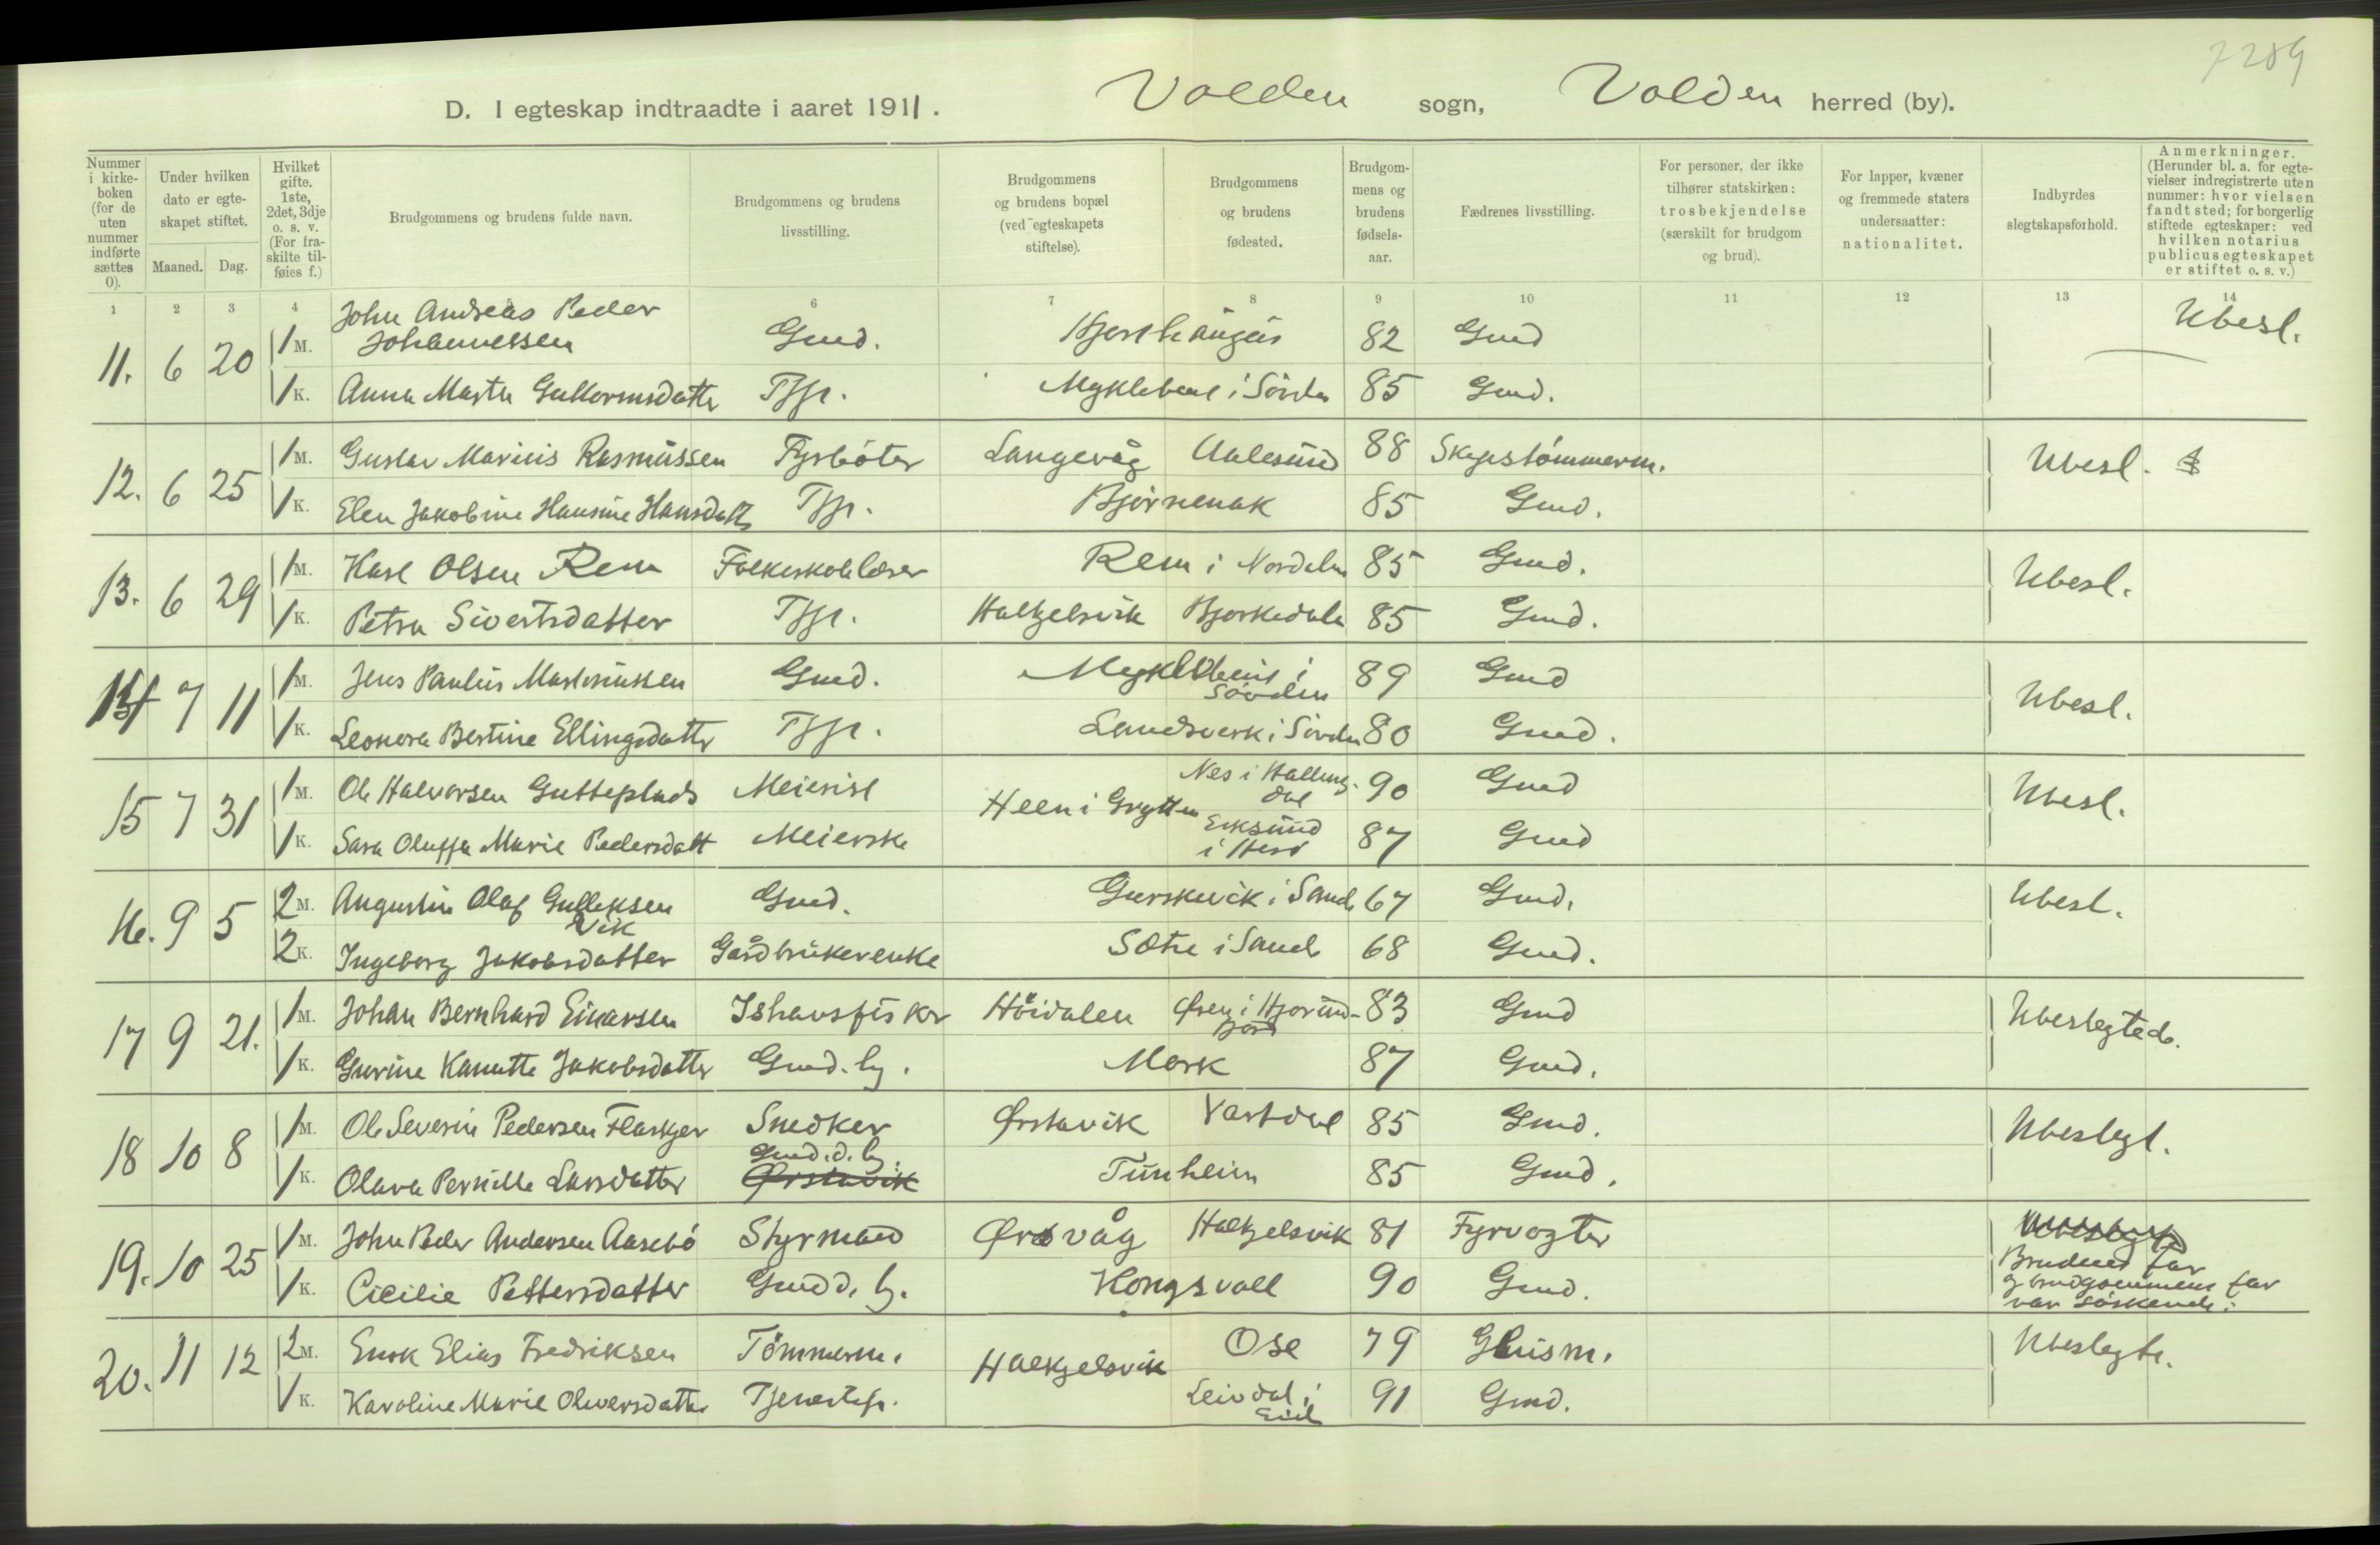 7289
D. I egteskap indtraadte i aaret 1911. Volden sogn, Volden herred (by).
Nummer i kirkeboken (for de uten nummer indførte sættes 0).
Under hvilken dato er egteskapet stiftet.
Maaned. Dag.
Hvilket gifte. 1ste, 2det, 3dje o. s. v. (For fraskilte tilføies f.)
Brudgommens og brudens fulde navn.
Brudgommens og brudens livsstilling.
Brudgommens og brudens bopæl (ved egteskapets stiftelse).
Brudgommens og brudens fødested.
Brudgommens og brudens fødselsaar.
Fædrenes livsstilling.
For personer, der ikke tilhører statskirken: trosbekjendelse (særskilt for brudgom og brud).
For lapper, kvæner og fremmede staters undersaatter: nationalitet.
Indbyrdes slegtskapsforhold.
Anmerkninger. (Herunder bl. a. for egtevielser indregistrerte uten nummer: hvor vielsen fandt sted; for borgerlig stiftede egteskaper: ved hvilken notarius publicus egteskapet er stiftet o. s. v.)
1 2 3 4 6 7 8 9 10 11 12 13 14
John Andreas Peder
11. 6 20 1 M. Johannessen Gmd. 82 Gmd Ubesl.
1 K. Anna Marta Guttormsdatter Tjp. Myklebust i Sövde 85 Gmd.
12. 6 25 1 M. Gustav Marius Rasmussen Fyrböter Langevåg Aalesund 88 Skipstömmerm. Ubesl.
1 K. Elen Jakobine Hansine Hansdatt Tjp. Bjørnenak 85 Gmd.
13. 6 29 1 M. Karl Olsen Rem Folkeskolelærer Rem i Nordalen 85 Gmd. Ubesl.
1 K. Petra Sivertsdatter Tjp. Halkjelsvik Bjørkedale 85 Gmd.
14 7 11 1 M. Jens Paulus Martinussen Gmd. Myklebust i Sövden 89 Gmd Ubesl.
1 K. Leonora Bertine Ellingsdatter Tjp. Landsverk i Sövde 80 Gmd.
15 7 31 1 M. Ole Halvorsen Gutteplads Meierist Heen i Grytten Nes i Hallingdal 90 Gmd Ubesl.
1 K. Sara Oluffa Marie Pedersdatt Meierske Eiksund i Herö 87 Gmd
16. 9 5 2 M. Augustin Olaf Gulleksen Vik Gmd. Gurskevik i Sande 67 Gmd. Ubesl.
2 K. Ingeborg Jakobsdatter Gårdbrukerenke Sætre i Sande 68 Gmd.
17 9 21. 1 M. Johan Bernhard Einarsen Ishavsfisker Höidalen Øren i Hjørundfjord 83 Gmd Ubeslegtede.
1 K. Gurine Kanutte Jakobsdatter Gmd. hj. Mork 87 Gmd.
18 10 8 1 M. Ole Severin Pedersen Flaskjer Snedker Ørstavik Vartdal 85 Gmd. Ubeslegt.
1 K. Olava Pernille Larsdatter Gmd. d. hj. Ørstavik Tunheim 85 Gmd.
19. 10 25 1 M. John Peder Andersen Aasebö Styrmand Ørsvåg Halkjelsvik 81 Fyrvogter Ubeslegt
1 K. Cicilie Pettersdatter Gmd d. hj. Kongsvoll 90 Gmd. Brudens far
og brudgommens far
var söskende.
20. 11 12 2 M. Enok Elias Fredriksen Tömmerm. Halkjelsvik Ose 79 Ghusm. Ubeslegte.
1 K. Karoline Marie Oliversdatter Tjenestep. Leivdal i Eid 91 Gmd.